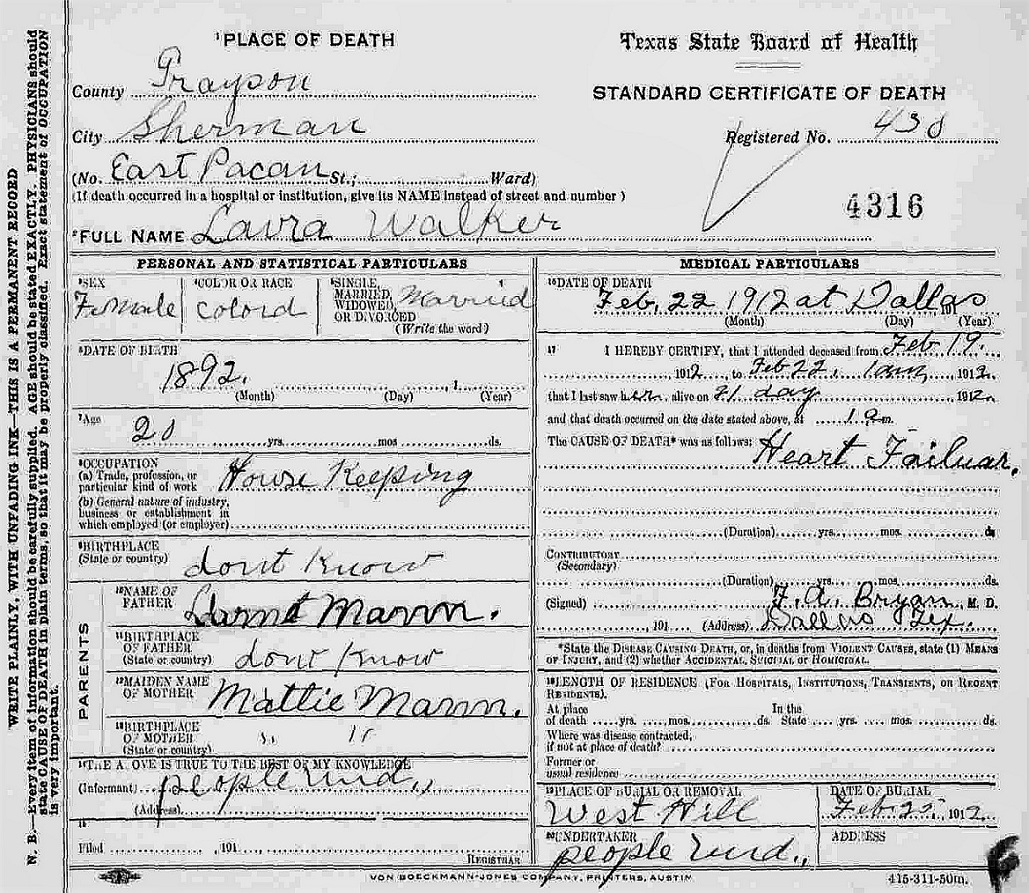 ¹PLACE OF DEATH
County Grayson
City Sherman
(No. East Pacan St.; Ward)
(If death occurred in a hospital or institution, give its NAME instead of street and number)
²FULL NAME Laura Walker
Texas State Board of Health
STANDARD CERTIFICATE OF DEATH
Registered No. 430
4316
PERSONAL AND STATISTICAL PARTICULARS
³SEX
Female
⁴COLOR OR RACE
Colord
⁵SINGLE,
MARRIED,
WIDOWED
OR DIVORCED
(Write the word)
Married
⁶DATE OF BIRTH
1892.
, 1
(Month) (Day) (Year)
⁷Age
20 yrs. mos. ds.
⁸OCCUPATION
(a) Trade, profession, or
particular kind of work House Keeping
(b) General nature of industry,
business or establishment in
which employed (or employer)
⁹BIRTHPLACE
(State or country) dont Know
PARENTS
¹⁰NAME OF
FATHER
¹¹BIRTHPLACE
OF FATHER
(State or country) dont Know
¹²MAIDEN NAME
OF MOTHER Mattie
¹³BIRTHPLACE
OF MOTHER " "
(State or country)
¹⁴THE ABOVE IS TRUE TO THE BEST OF MY KNOWLEDGE
(Informant) people und.,
(Address)
¹⁵
Filed , 191
REGISTRAR
MEDICAL PARTICULARS
¹⁶DATE OF DEATH
Feb, 22 1912 at Dallas 191
(Month) (Day) (Year)
¹⁷ I HEREBY CERTIFY, that I attended deceased from Feb 19.
, 1912, to Feb 22, 1am, 1912,
that I last saw her alive on 21 day, 1912
and that death occurred on the date stated above, at 1 a m.
The CAUSE OF DEATH* was as follows:
Heart Failuar.
(Duration) yrs. mos. ds
CONTRIBUTORY
(Secondary)
(Duration) yrs. mos. ds.
(Signed) F. A. Bryan, M. D.
, 191 (Address) Dallas Tex.
*State the DISEASE CAUSING DEATH, or, in deaths from VIOLENT CAUSES, state (1) MEANS
OF INJURY, and (2) whether ACCIDENTAL, SUICIDAL OR HOMICIDAL.
¹⁸LENGTH OF RESIDENCE (FOR HOSPITALS, INSTITUTIONS, TRANSIENTS, OR RECENT
RESIDENTS).
At place In the
of death yrs. mos. ds. State yrs. mos. ds.
Where was disease contracted,
if not at place of death?
Former or
usual residence
¹⁹PLACE OF BURIAL OR REMOVAL
West Hill
DATE OF BURIAL
Feb 1912
²⁰UNDERTAKER
people und.,
ADDRESS
VON BOECKMANN-JONES COMPANY, PRINTERS, AUSTIN
415-311-50m.
WRITE PLAINLY, WITH UNFADING INK—THIS IS A PERMANENT RECORD
N. B.—Every item of information should be carefully supplied. AGE should be stated EXACTLY. PHYSICIANS should
state CAUSE OF DEATH in plain terms, so that it may be properly classified. Exact statement of OCCUPATION
is very important.